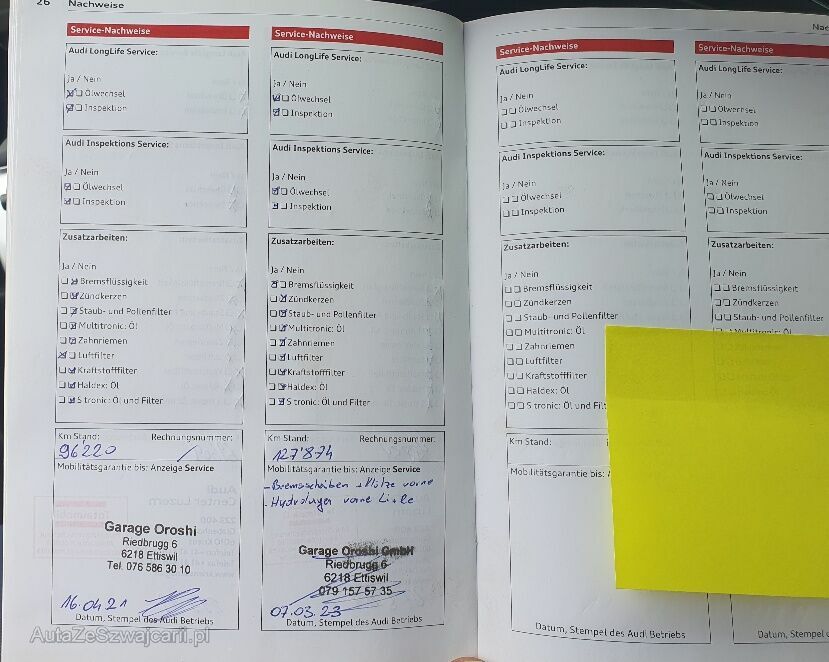 26 Nachweise
Service-Nachweise
Audi LongLife Service:
Ja / Nein
Ölwechsel
Inspektion
Audi Inspektions Service:
Ja / Nein
Ölwechsel
Inspektion
Zusatzarbeiten:
Ja / Nein
Bremsflüssigkeit
Zündkerzen
Staub- und Pollenfilter
Multitronic: Öl
Zahnriemen
Luftfilter
Kraftstofffilter
Haldex: Öl
S tronic: Öl und Filter
Km Stand: Rechnungsnummer:
96220
Mobilitätsgarantie bis: Anzeige Service
Garage Oroshi
Riedbrugg 6
6218 Ettiswil
Tel. 076 586 30 10
16.04.21
Datum, Stempel des Audi Betriebs
Service-Nachweise
Audi LongLife Service:
Ja / Nein
Ölwechsel
Inspektion
Audi Inspektions Service:
Ja / Nein
Ölwechsel
Inspektion
Zusatzarbeiten:
Ja / Nein
Bremsflüssigkeit
Zündkerzen
Staub- und Pollenfilter
Multitronic: Öl
Zahnriemen
Luftfilter
Kraftstofffilter
Haldex: Öl
S tronic: Öl und Filter
Km Stand: Rechnungsnummer:
127'874
Mobilitätsgarantie bis: Anzeige Service
- Bremsscheiben + Klötze vorne
- Hydrolager vorne Links
Garage Oroshi GmbH
Riedbrugg 6
6218 Ettiswil
079 157 57 35
07.03.23
Datum, Stempel des Audi Betriebs
Service-Nachweise
Audi LongLife Service:
Ja / Nein
Ölwechsel
Inspektion
Audi Inspektions Service:
Ja / Nein
Ölwechsel
Inspektion
Zusatzarbeiten:
Ja / Nein
Bremsflüssigkeit
Zündkerzen
Staub- und Pollenfilter
Multitronic: Öl
Zahnriemen
Luftfilter
Kraftstofffilter
Haldex: Öl
S tronic: Öl und Filt
Km Stand:
Mobilitätsgarantie bis:
Datum, Stempel des Audi Betriebs
Nac
Service-Nachweise
Audi LongLife Service:
Ja / Nein
Ölwechsel
Inspektion
Audi Inspektions Service:
Ja / Nein
Ölwechsel
Inspektion
Zusatzarbeiten:
Ja / Nein
Bremsflüssigkeit
Zündkerzen
Staub- und Pollenfilter
Multitronic: Öl
Datum, Stempel des
AutaZeSzwajcarii.pl